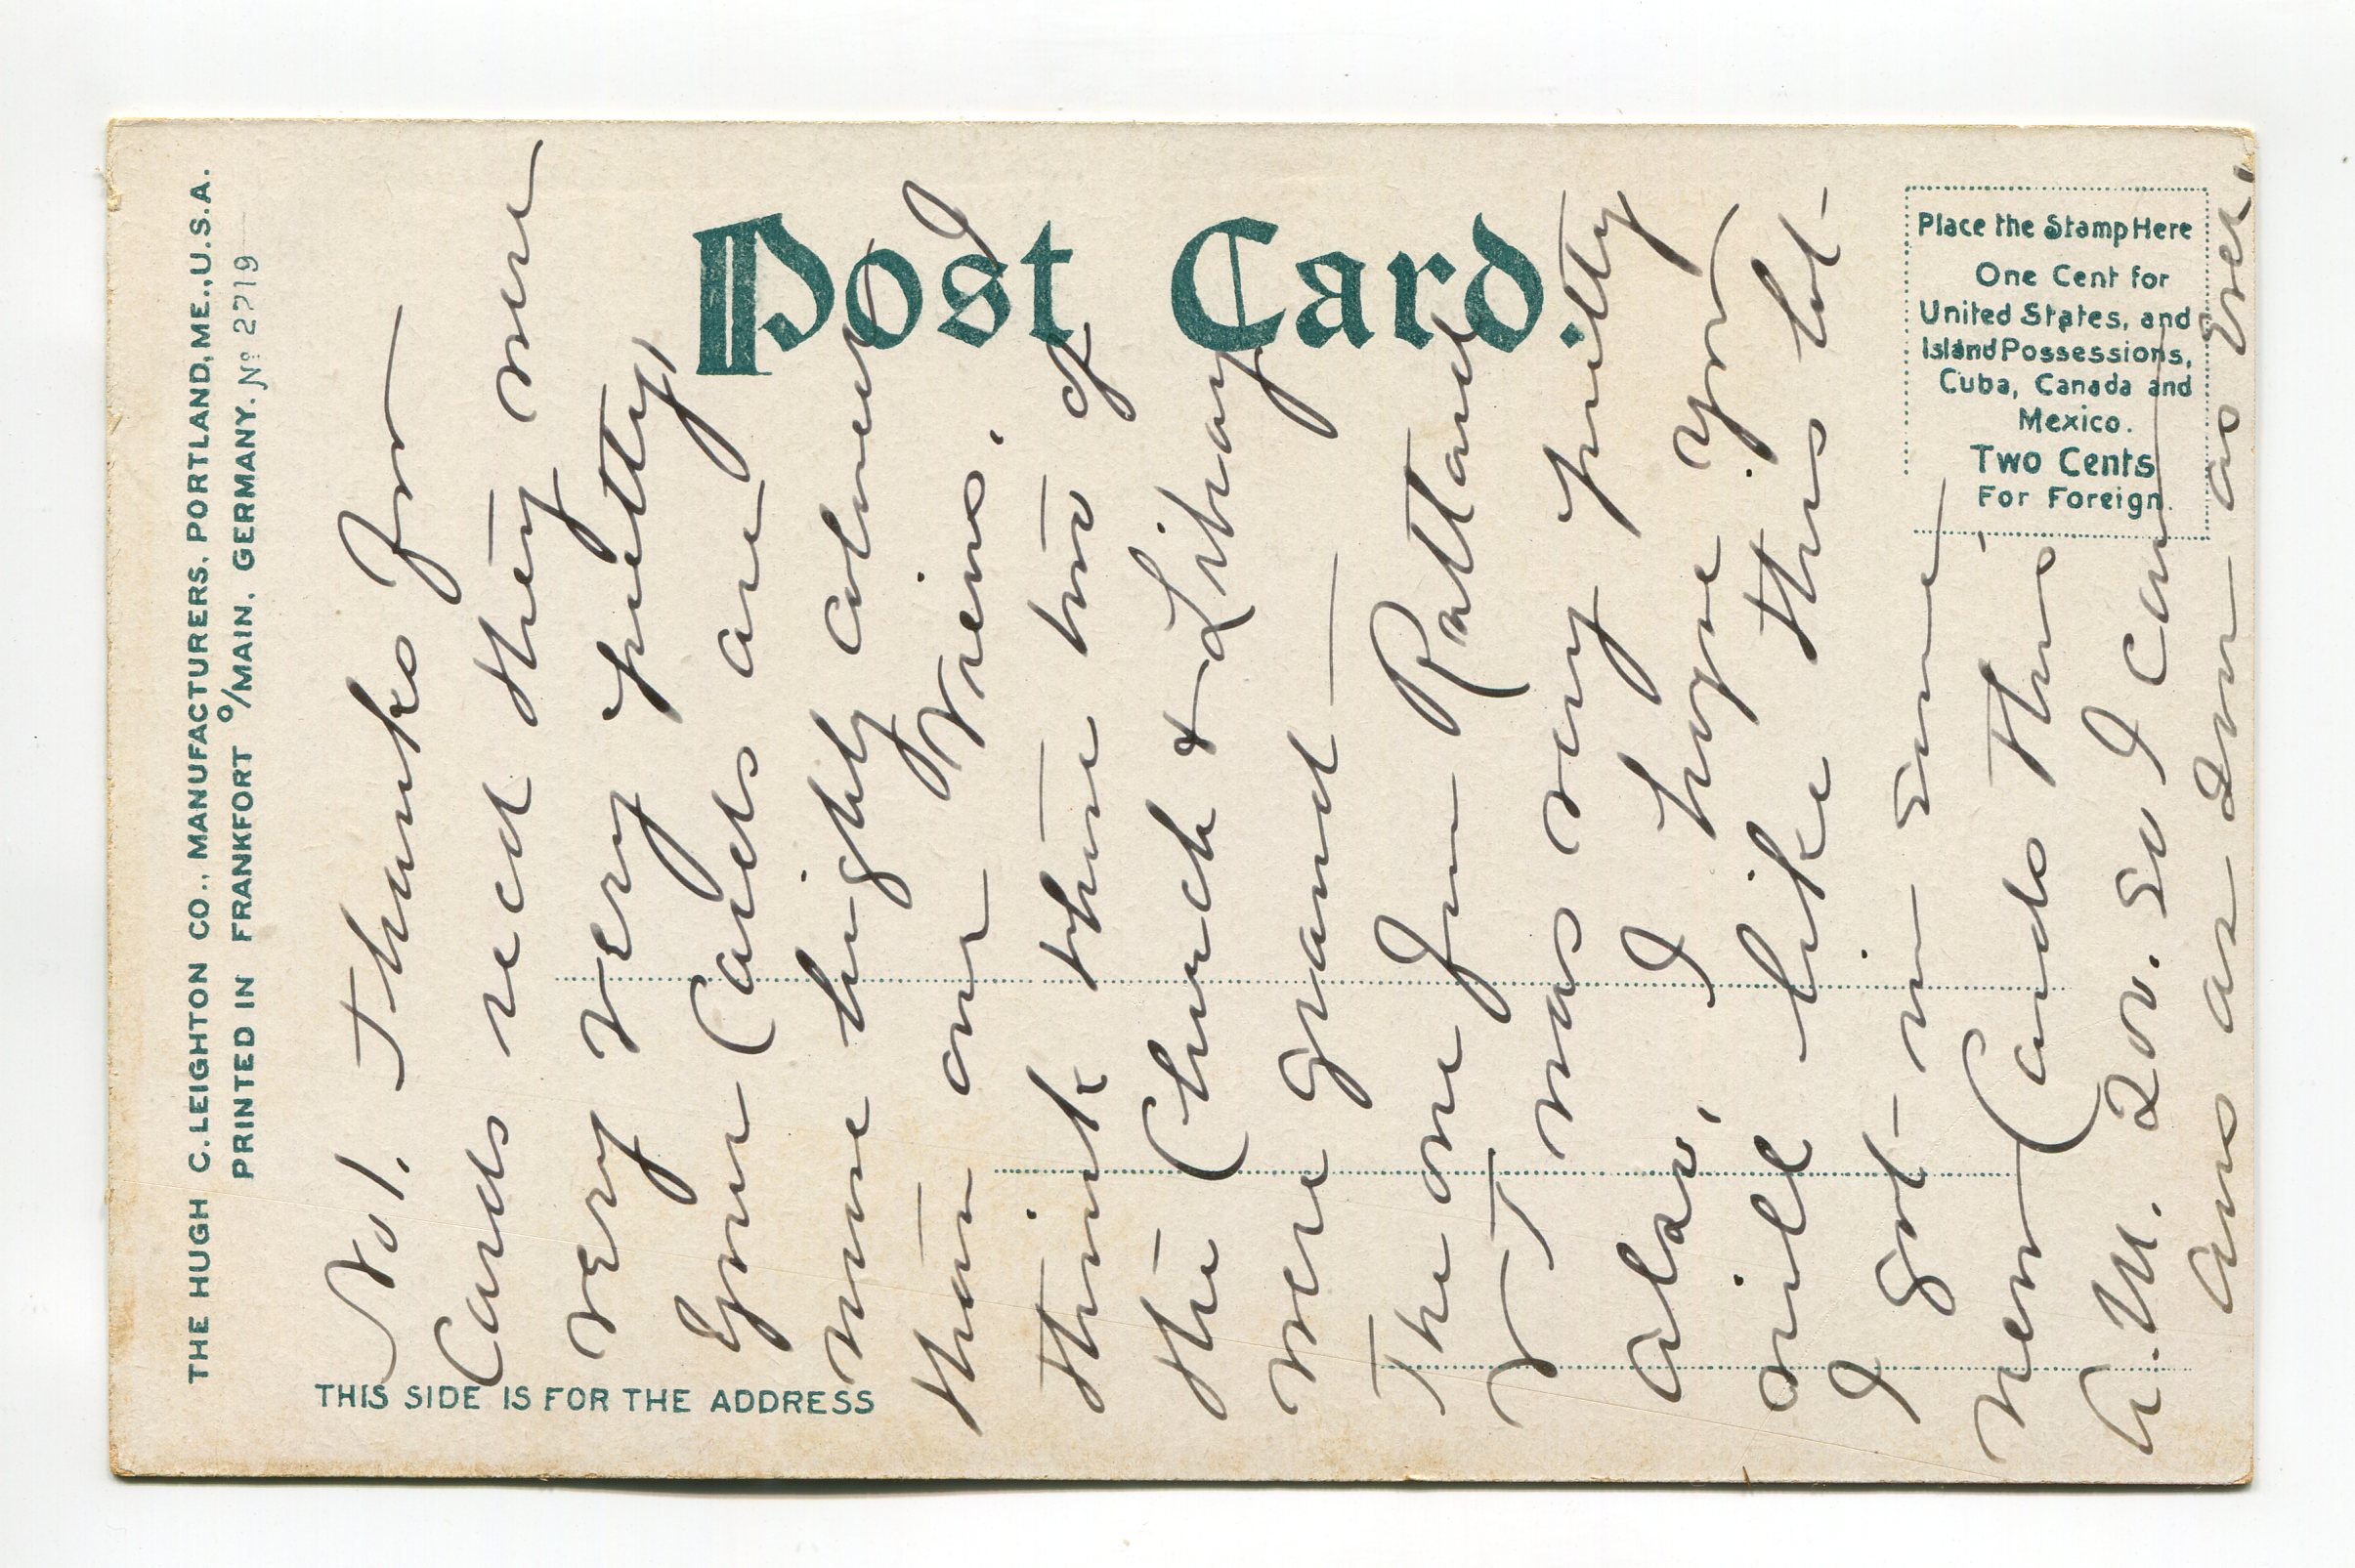 THE HUGH C. LEIGHTON CO., MANUFACTURERS, PORTLAND, ME., U.S.A.
PRINTED IN FRANKFORT º/MAIN, GERMANY. Nº 2719
Post Card.
THIS SIDE IS FOR THE ADDRESS
Place the Stamp Here
One Cent for
United States, and
Island Possessions,
Cuba, Canada and
Mexico.
Two Cents
For Foreign.
No 1. Thanks for
Cards recd they were
very very pretty,
Gove Cards are
more highly colored
than our Views. I
think those two of
the Church & Library
were grand —
The one from Rattand
V T was very pretty
also, I hope you
will like this lot-
I got in some
new Cards this
A.M. 200. So I can
ans as soon as ever.